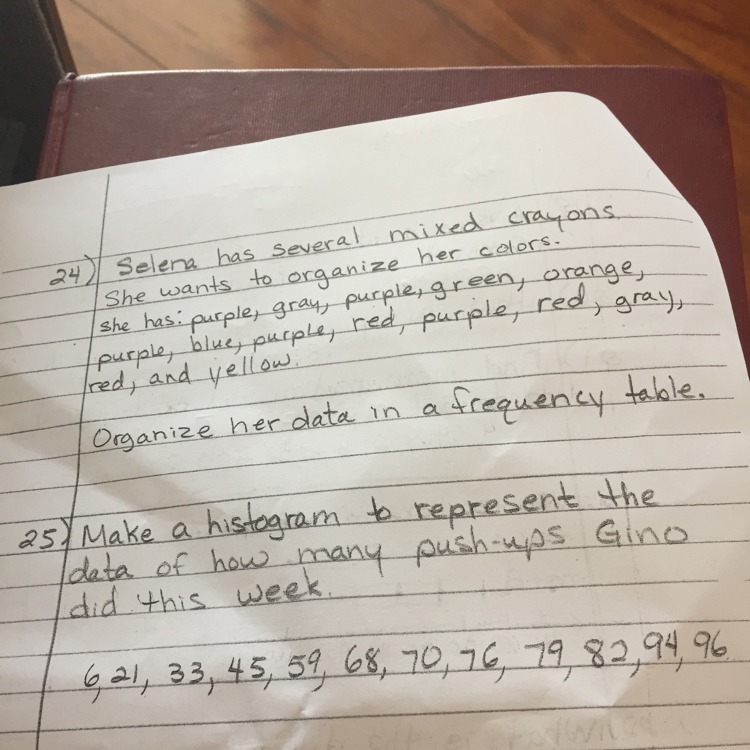 24) Selena has several mixed crayons
She wants to organize her colors.
she has: purple, gray, purple, green, orange,
purple, blue, purple, red, purple, red, gray,
red, and yellow.
Organize her data in a frequency table.
25) Make a histogram to represent the
data of how many push-ups Gino
did this week.
6, 21, 33, 45, 59, 68, 70, 76, 79, 82, 94, 96